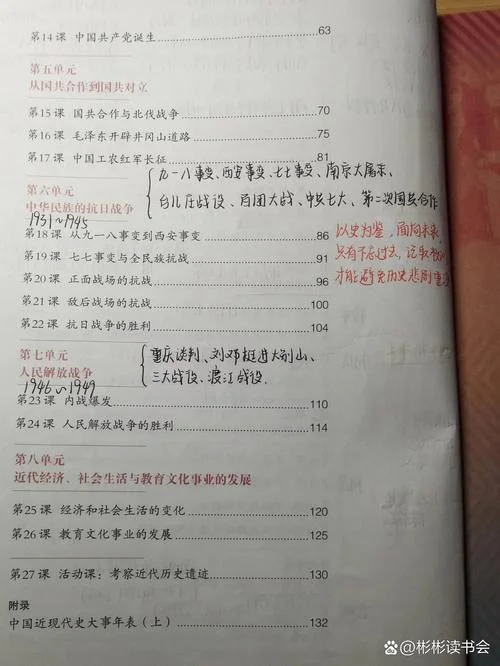 第14课 中国共产党诞生 63
第五单元
从国共合作到国共对立
第15课 国共合作与北伐战争 70
第16课 毛泽东开辟井冈山道路 75
第17课 中国工农红军长征 81
九一八事变、西安事变、七七事变、南京大屠杀、
第六单元
中华民族的抗日战争
台儿庄战役、百团大战、中共七大、第二次国共合作
1931~1945
第18课 从九一八事变到西安事变 86
以史为鉴,面向未来,
第19课 七七事变与全民族抗战 91
只有不忘过去,记取
第20课 正面战场的抗战 96
才能避免历史悲剧重
第21课 敌后战场的抗战 100
第22课 抗日战争的胜利 104
第七单元
人民解放战争
重庆谈判、刘邓挺进大别山、
三大战役、渡江战役.
1946~1949
第23课 内战爆发 110
第24课 人民解放战争的胜利 114
第八单元
近代经济、社会生活与教育文化事业的发展
第25课 经济和社会生活的变化 120
第26课 教育文化事业的发展 125
第27课 活动课:考察近代历史遗迹 130
附录
中国近现代史大事年表(上) 132
@彬彬读书会